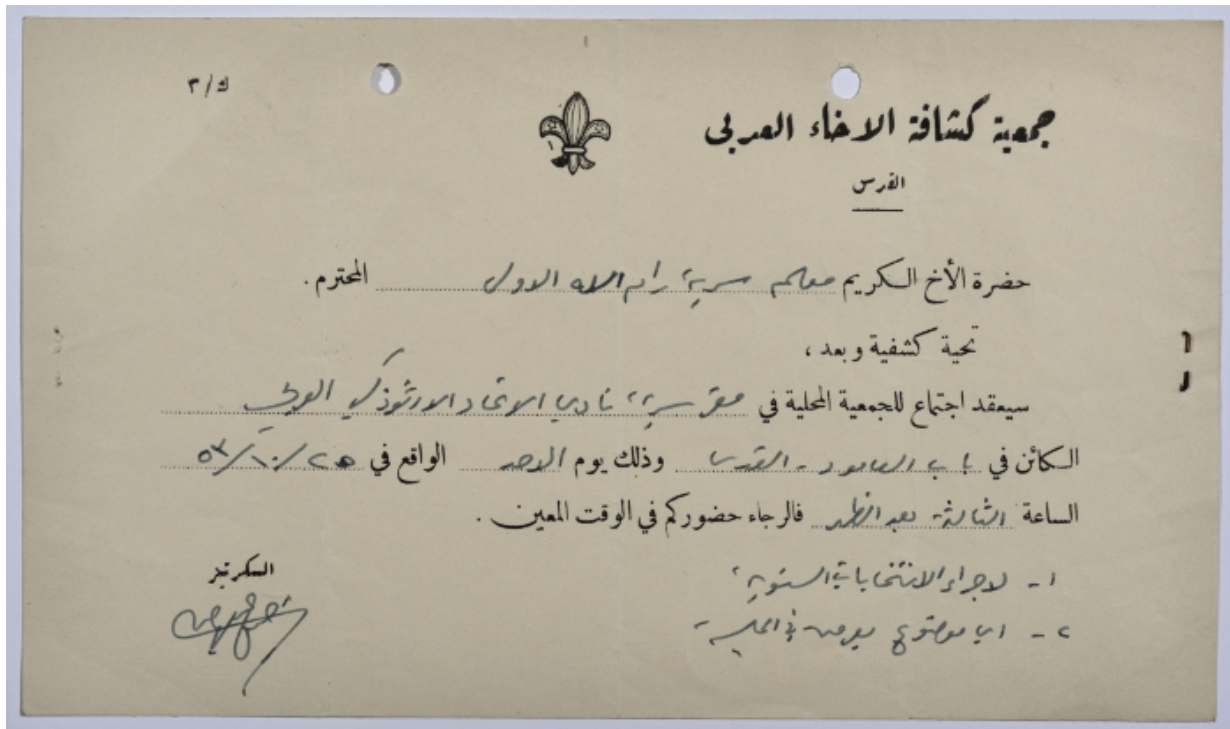 ك/٣
جمعية كشافة الاخاء العربي
القدس
حضرة الأخ الكريم معلم سرية رام الله الاولى المحترم .
تحية كشفية وبعد ،
سيعقد اجتماع للجمعية المحلية في مقر سرية نادي الاتحاد الارثوذكسي العربي
الكائن في باب العامود - القدس وذلك يوم الاحد الواقع في ٢٥/١٠/٥٣
الساعة الثالثة بعد الظهر فالرجاء حضوركم في الوقت المعين .
١- لاجراء الانتخابات السنوية
٢- اي موضوع يعرض في الجلسة
السكرتير